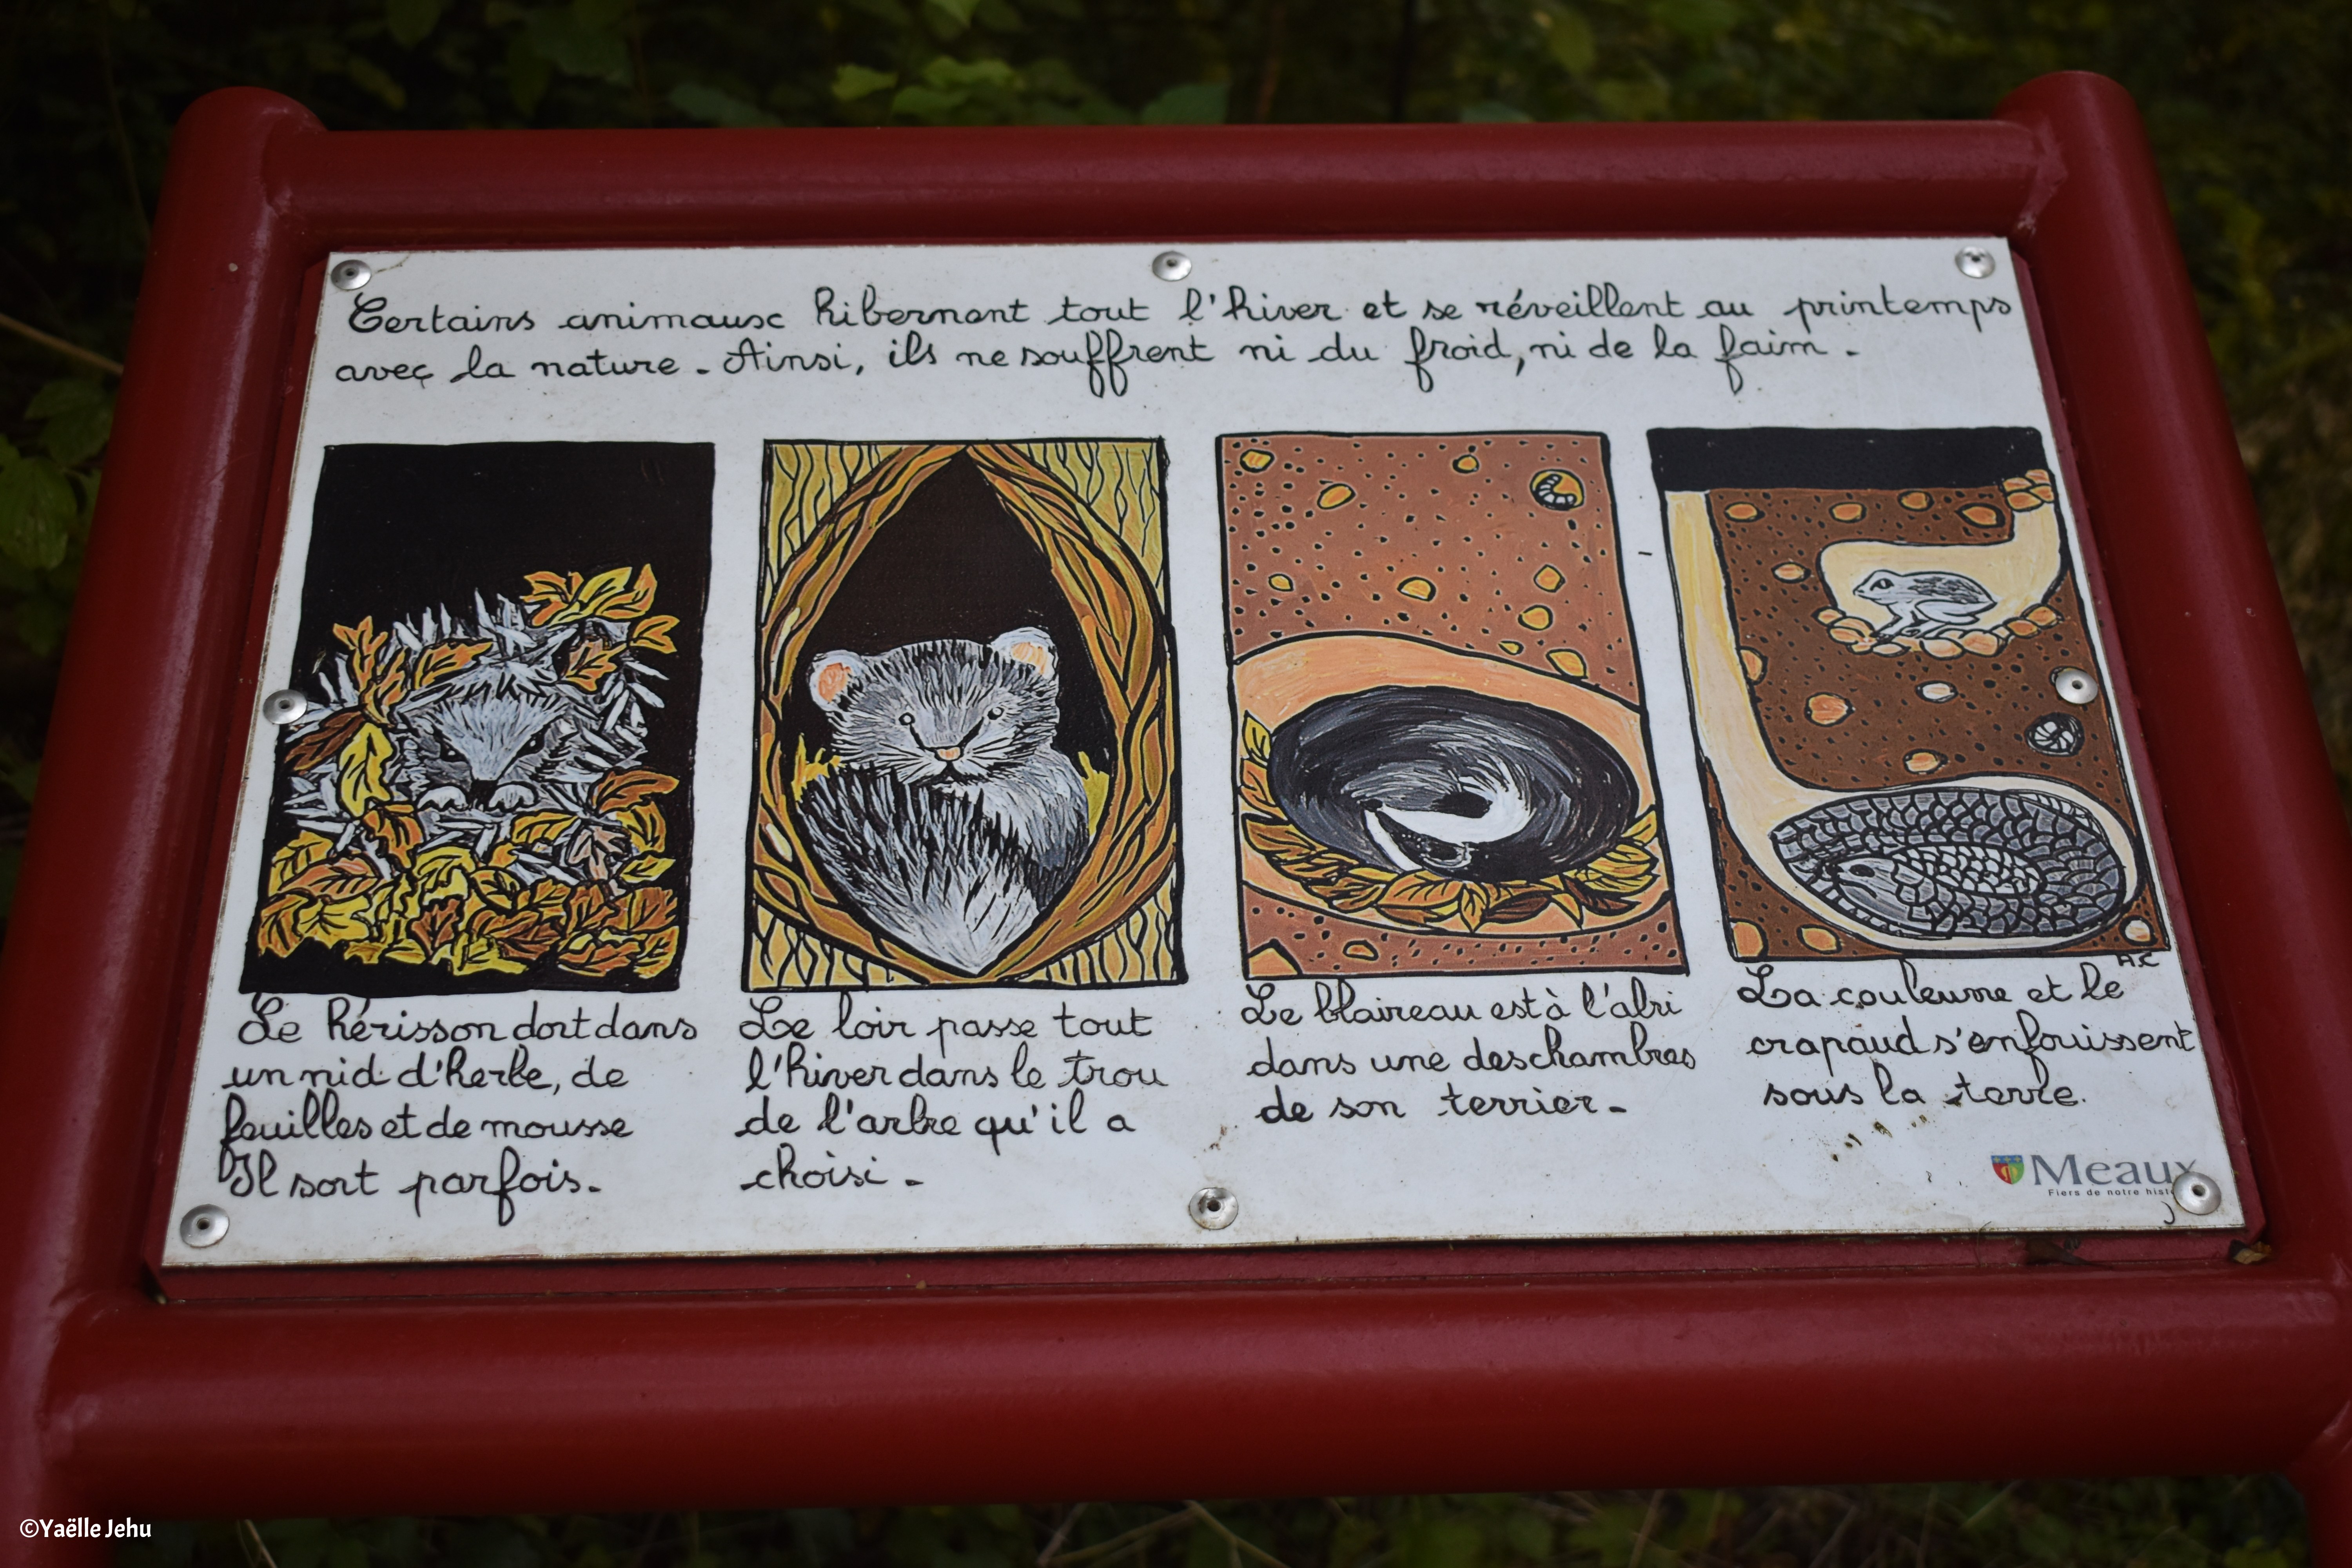 Certains animaux hibernent tout l'hiver et se réveillent au printemps
avec la nature. Ainsi, ils ne souffrent ni du froid, ni de la faim.
Le hérisson dort dans
un nid d'herbe, de
feuilles et de mousse
Il sort parfois.
Le loir passe tout
l'hiver dans le trou
de l'arbre qu'il a
choisi.
Le blaireau est à l'abri
dans une des chambres
de son terrier.
A.C
La couleuvre et le
crapaud s'enfouissent
sous la terre.
Meaux
Fiers de notre
©Yaëlle Jehu